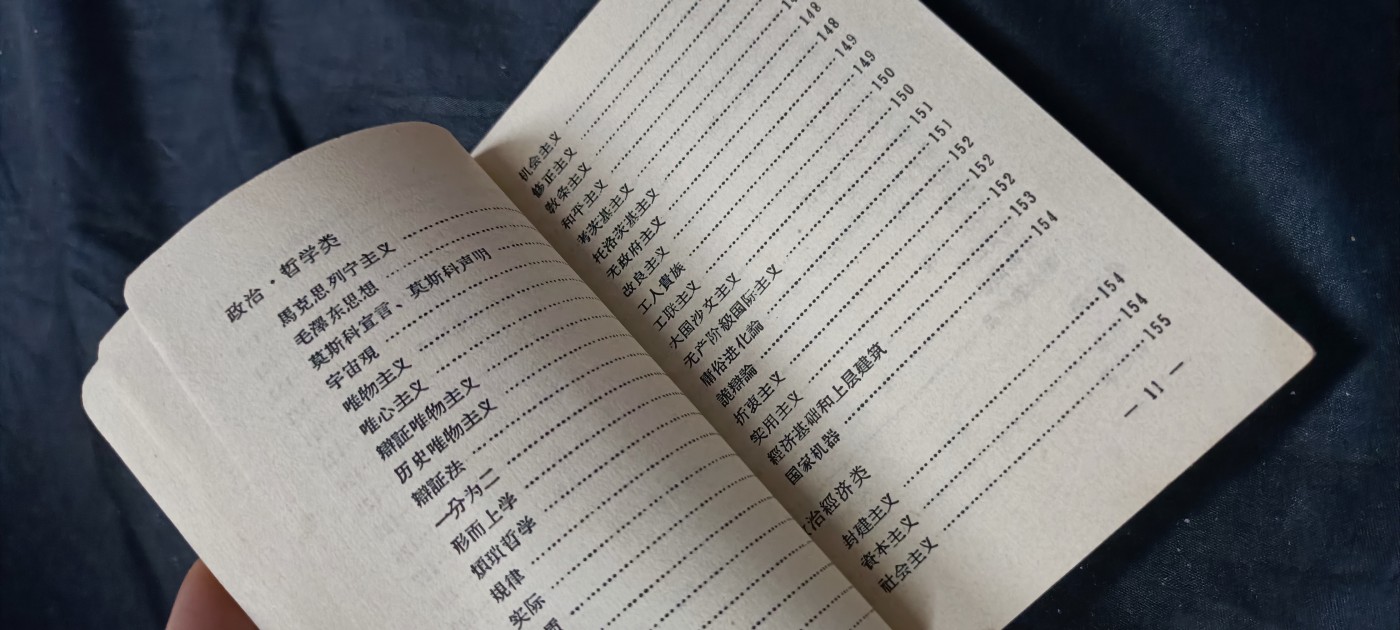 政治·哲学类
馬克思列宁主义
毛澤东思想
莫斯科宣言、莫斯科声明
宇宙观
唯物主义
唯心主义
辯証唯物主义
历史唯物主义
辯証法
一分为二
形而上学
煩琐哲学
規律
实际
机会主义
修正主义
教条主义
和平主义
考茨基主义
托洛茨基主义 148
无政府主义 148
改良主义 149
工人貴族 149
工联主义 150
大国沙文主义 150
无产阶級国际主义 151
庸俗进化論 151
詭辯論 152
折衷主义 152
实用主义 152
經济基础和上层建筑 153
国家机器 154
治經济类
封建主义 154
資本主义 154
社会主义 155
— 11 —